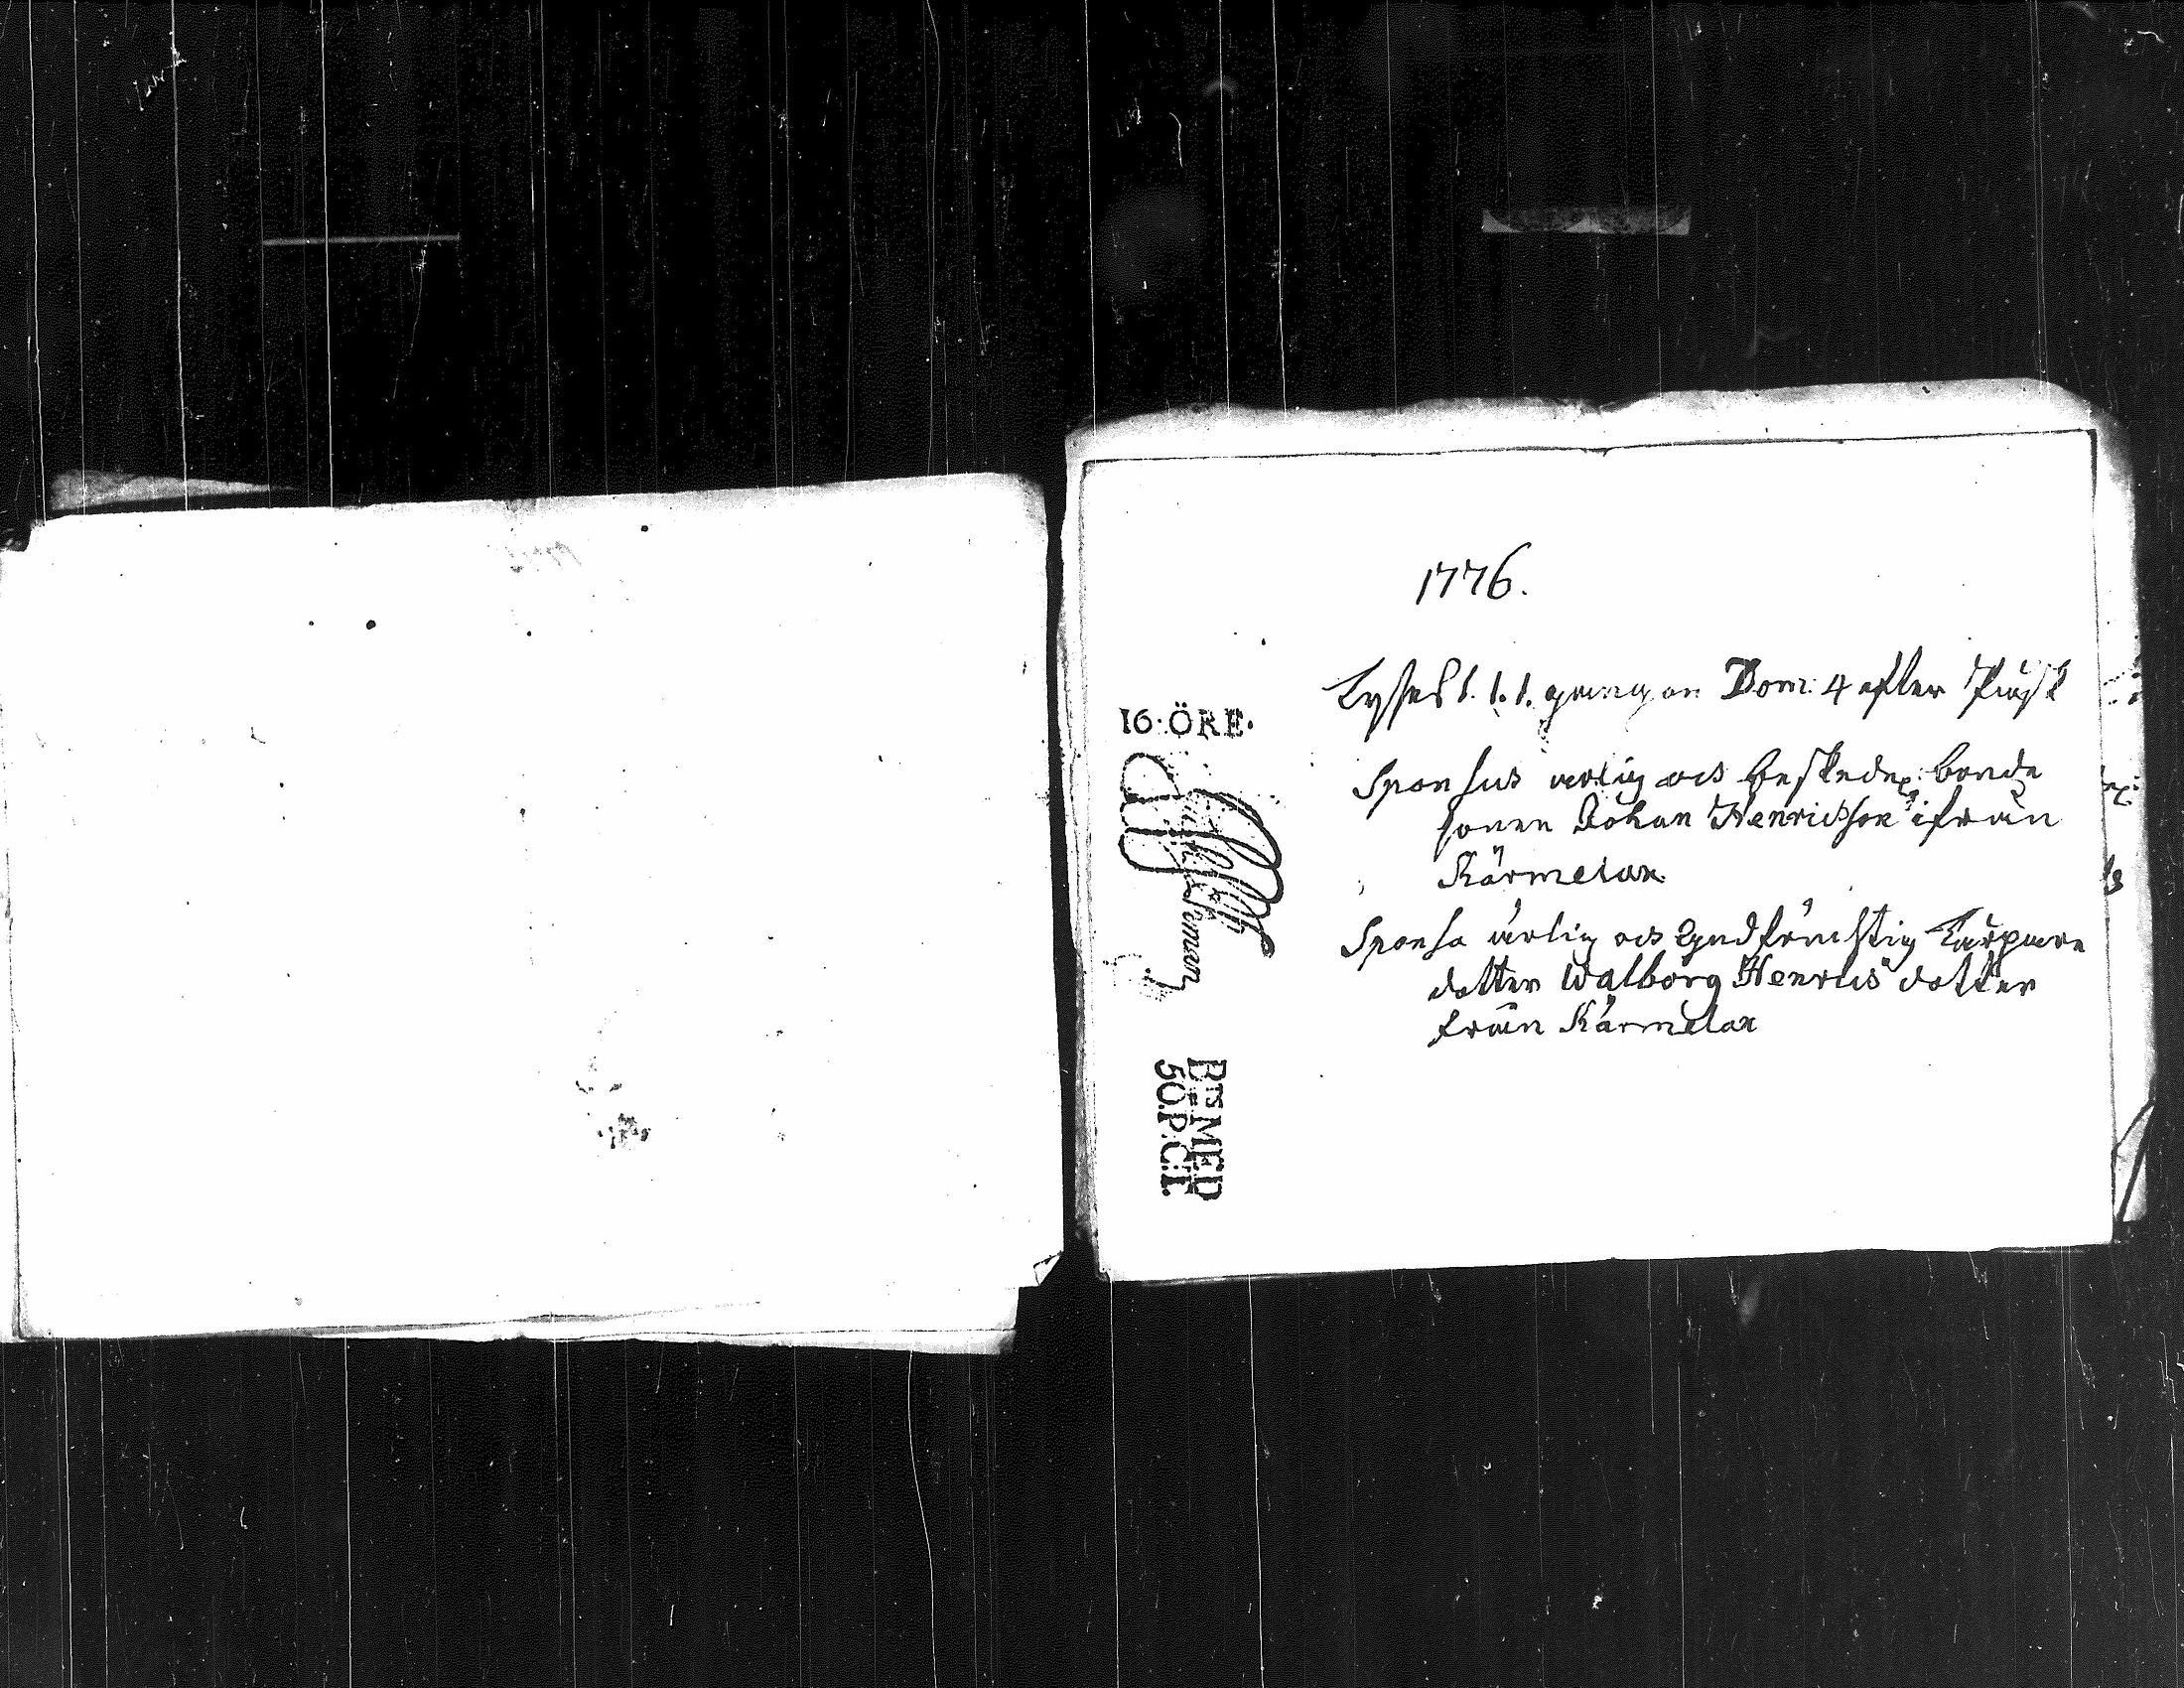 1776.
Lyses 1. 1. 1. gången Dom: 4 after Påsk
16·ÖRE·
Sponsus ärlig och beskedel: bonde
sonen Johan Henricsson ifrån
Kärmelax
Sponsa ärlig och Gudfruchtig Tårpare
dotter Walborg Henrics dotter
från Kärmelax
BTS MED
50.P:C:T.